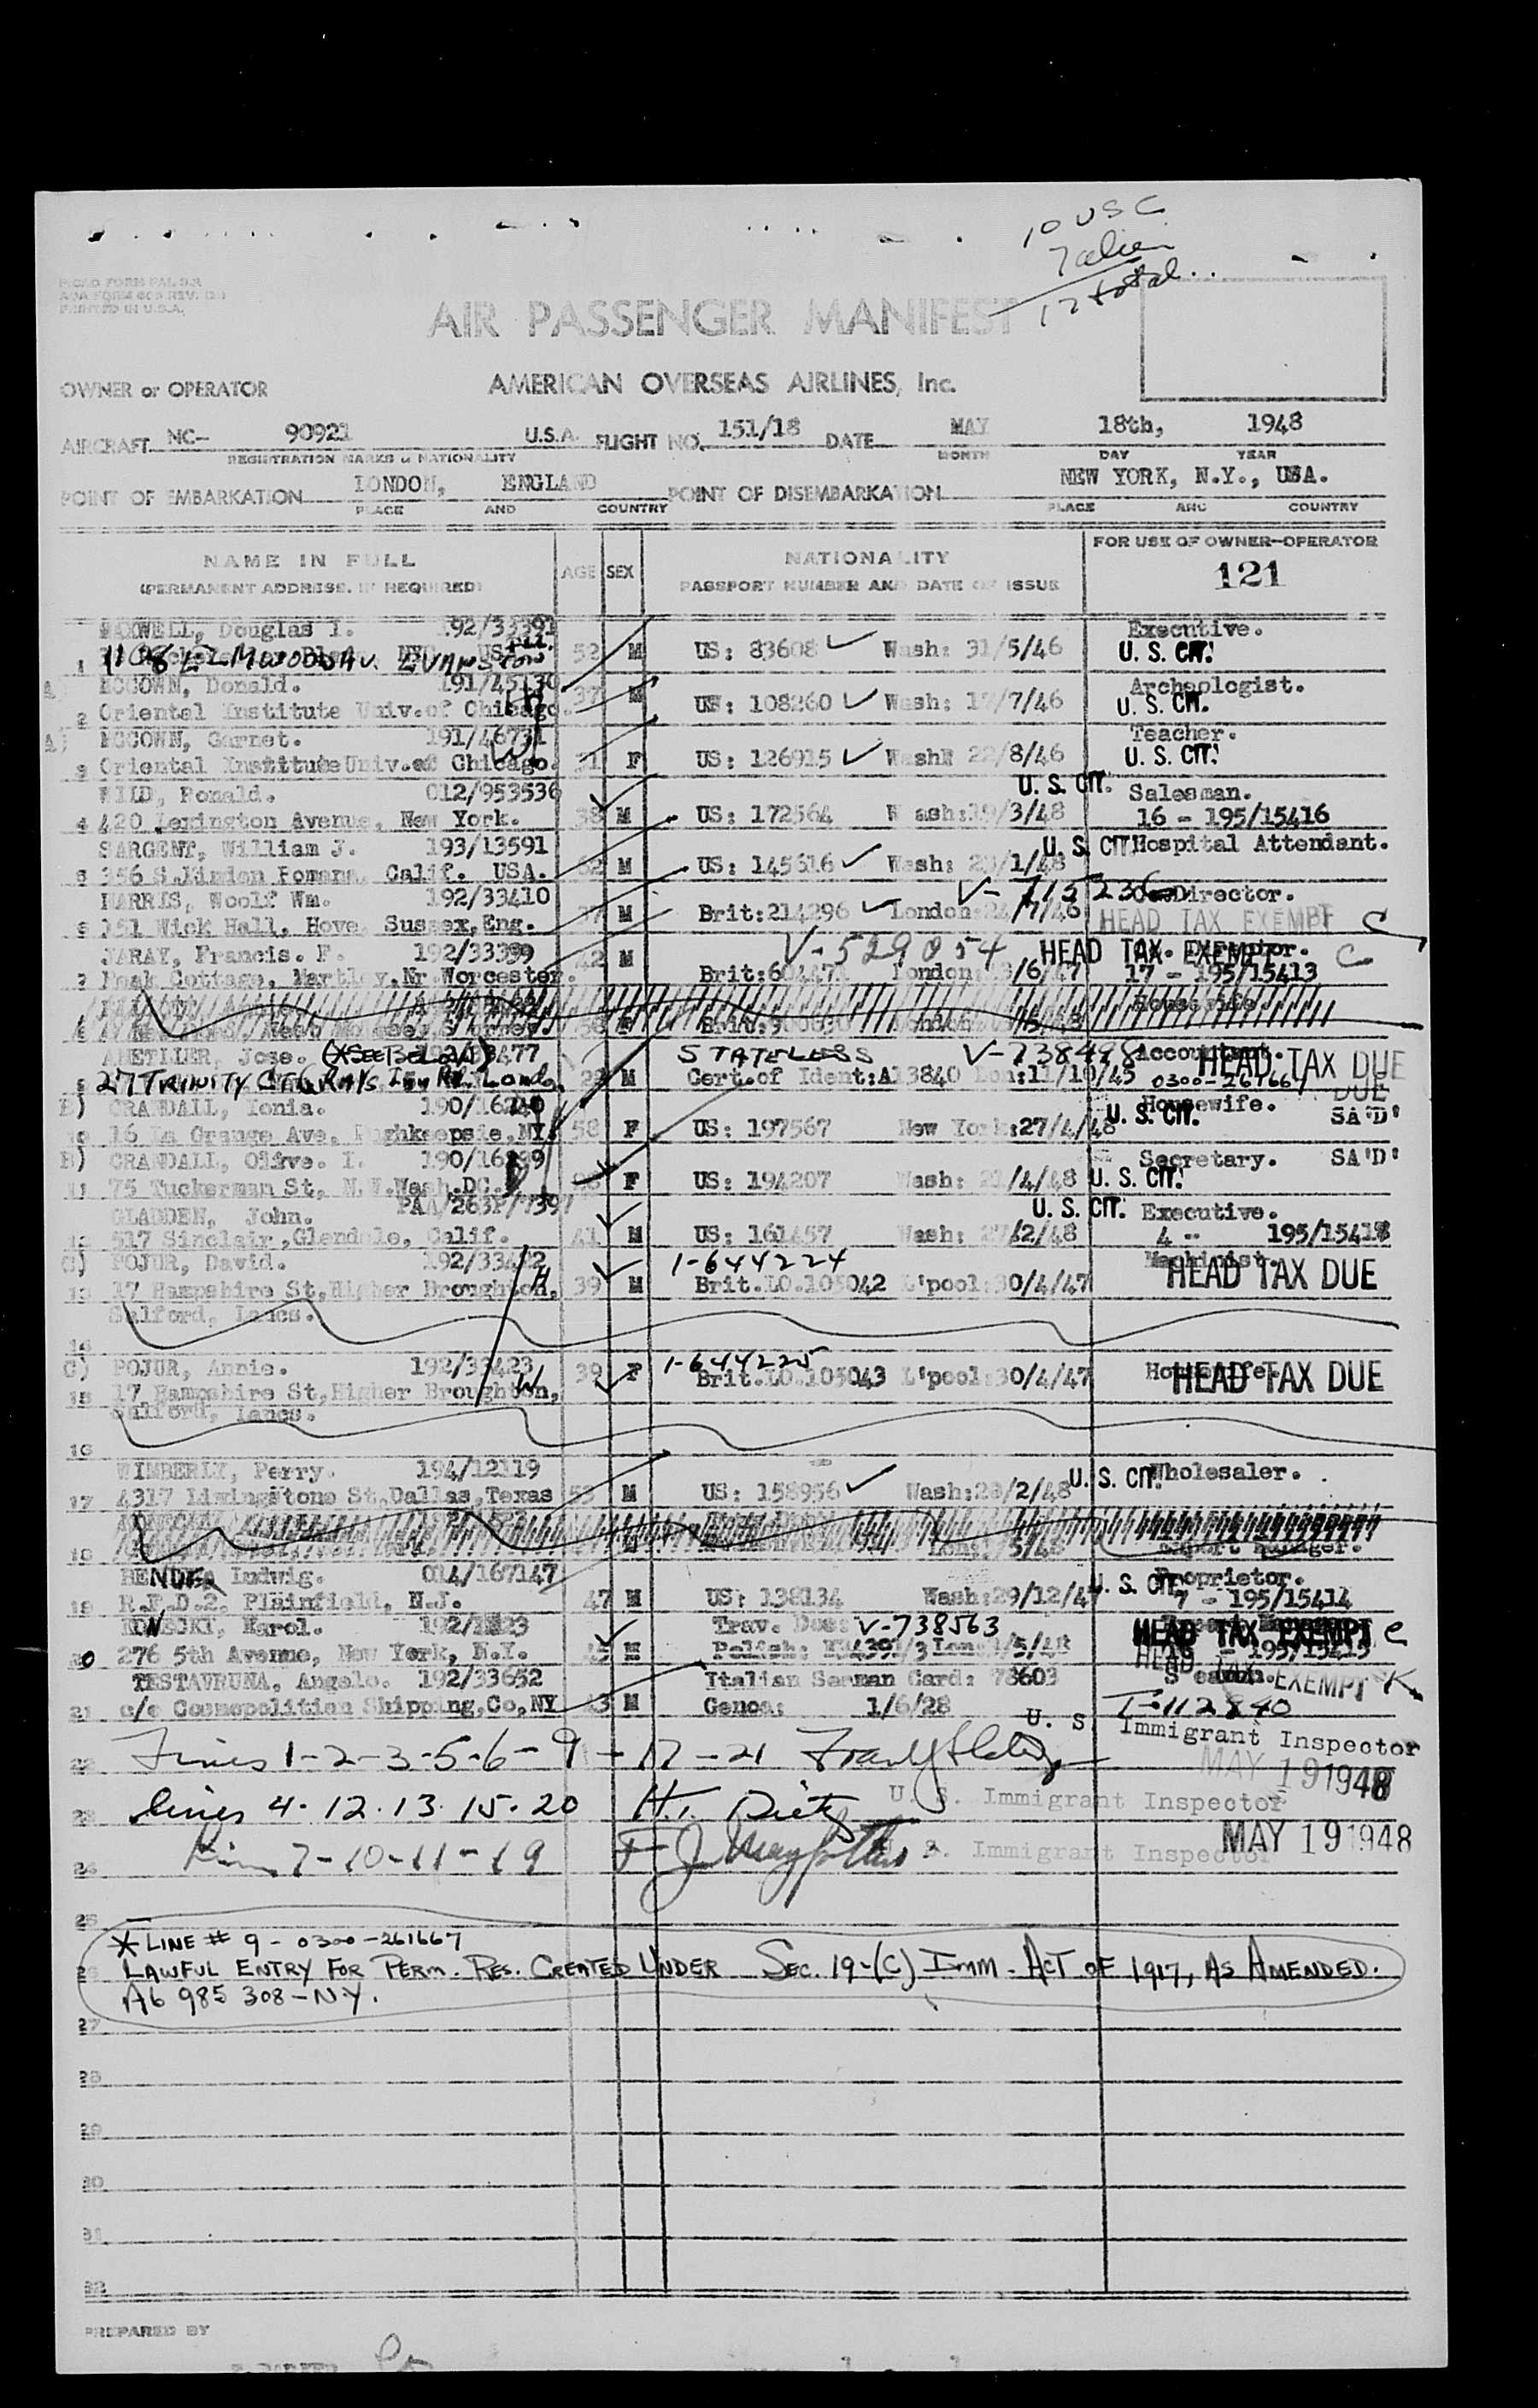 10 USC
7 alien
17 total
PRINTED IN U.S.A.
AIR PASSENGER MANIFEST
OWNER or OPERATOR AMERICAN OVERSEAS AIRLINES, Inc.
AIRCRAFT NC- 90921 U.S.A. FLIGHT NO. 151/18 DATE MAY 18th, 1948
REGISTRATION MARKS & NATIONALITY MONTH DAY YEAR
POINT OF EMBARKATION LONDON, ENGLAND POINT OF DISEMBARKATION NEW YORK, N.Y., USA.
PLACE AND COUNTRY PLACE AND COUNTRY
NAME IN FULL AGE SEX NATIONALITY FOR USE OF OWNER-OPERATOR
(PERMANENT ADDRESS, IF REQUIRED) PASSPORT NUMBER AND DATE OF ISSUE 121
MAXWELL, Douglas I. 192/33391 Executive.
1 1108 ELMWOOD AV. EVANSTON ILL. 52 M US: 83608 Wash: 31/5/46 U. S. CIT.
A) MCCOWN, Donald. 191/45130 Archaologist.
2 Oriental Institute Univ. of Chicago. 37 M US: 108260 Wash: 17/7/46 U. S. CIT.
A) MCCOWN, Garnet. 191/46731 Teacher.
3 Oriental Institute Univ. of Chicago. 31 F US: 126915 Wash: 22/8/46 U. S. CIT.
WILD, Ronald. 012/953536 U. S. CIT. Salesman.
4 420 Lexington Avenue, New York. 38 M US: 172564 Wash: 19/3/48 16 - 195/15416
SARGENT, William J. 193/13591 U. S. CIT Hospital Attendant.
5 356 S. Pomona, Calif. USA. 62 M US: 145616 Wash: /1/48
HARRIS, Woolf Wm. 192/33410 V-715236 Director.
6 151 Wick Hall, Hove, Sussex, Eng. 37 M Brit: 214296 London: 24/7/46 HEAD TAX EXEMPT C
JARAY, Francis. F. 192/33399 V-529054 HEAD TAX EXEMPT C
7 Cottage, Martley, Nr. Worcester. 42 M Brit: London: /6/47 17 - 195/15413
Housewife.
8 58 F
Jose. (*SEE BELOW) 192/33477 STATELESS V-738498 Accountant. HEAD TAX DUE
9 27 TRINITY CT. GRAYS INN RD. Lond. M Cert. of Ident: A13840 Lon: 11/10/45 0300-261667 DUE
B) CRANDALL, Ionia. 190/16240 Housewife. SA'D'
10 16 La Grange Ave, Poughkeepsie, NY. 58 F US: 197567 New York: 27/4/48 U. S. CIT.
B) CRANDALL, Olive. I. 190/16 Secretary. SA'D'
11 75 Tuckerman St, N.W. Wash. DC. F US: 194207 Wash: 21/4/48 U. S. CIT.
GLADDEN, John. PAA/263P/7397 U. S. CIT. Executive.
12 517 Sinclair, Glendale, Calif. 41 M US: 161457 Wash: 27/2/48 4 - 195/15418
C) POJUR, David. 192/33422 1-644224 Machinist.
13 17 Hampshire St, Higher Broughton, 39 M Brit. LO. 105042 L'pool: 30/4/47 HEAD TAX DUE
Salford, Lancs.
14
C) POJUR, Annie. 192/33423 1-644225 Housewife.
15 17 Hampshire St, Higher Broughton, 39 F Brit. LO. 105043 L'pool: 30/4/47 HEAD TAX DUE
Salford, Lancs.
16
WIMBERLY, Perry. 194/12119 U. S. CIT. Wholesaler.
17 4317 Livingstone St, Dallas, Texas 53 M US: 158956 Wash: 28/2/48
18 Export Manager.
BENDER Ludwig. 014/167147 Proprietor.
19 R.F.D.2. Plainfield, N.J. 47 M US: 138134 Wash: 29/12/47 U. S. CIT. 7 - 195/15414
Karol. Trav. Doc: V-738563 HEAD TAX EXEMPT C
20 276 5th Avenue, New York, N.Y. M Polish: Lon: /5/48 195/15415
TESTAVRUNA, Angelo. 192/33652 Italian Seaman Card: 78603 Seaman. HEAD TAX EXEMPT
21 c/o Cosmopolitian Shipping, Co, NY M Genoa: 1/6/28 T-112840
22 Lines 1-2-3-5-6-9-17-21 U. S. Immigrant Inspector
MAY 19 1948
23 lines 4. 12. 13. 15. 20 H. Dietz U. S. Immigrant Inspector
MAY 19 1948
24 7-10-11-19 F J U. S. Immigrant Inspector
25
* LINE # 9 - 0300-261667
26 LAWFUL ENTRY FOR PERM. RES. CREATED UNDER SEC. 19-(C) IMM. ACT OF 1917, AS AMENDED.
A6 985 308-NY.
27
28
29
30
31
32
PREPARED BY